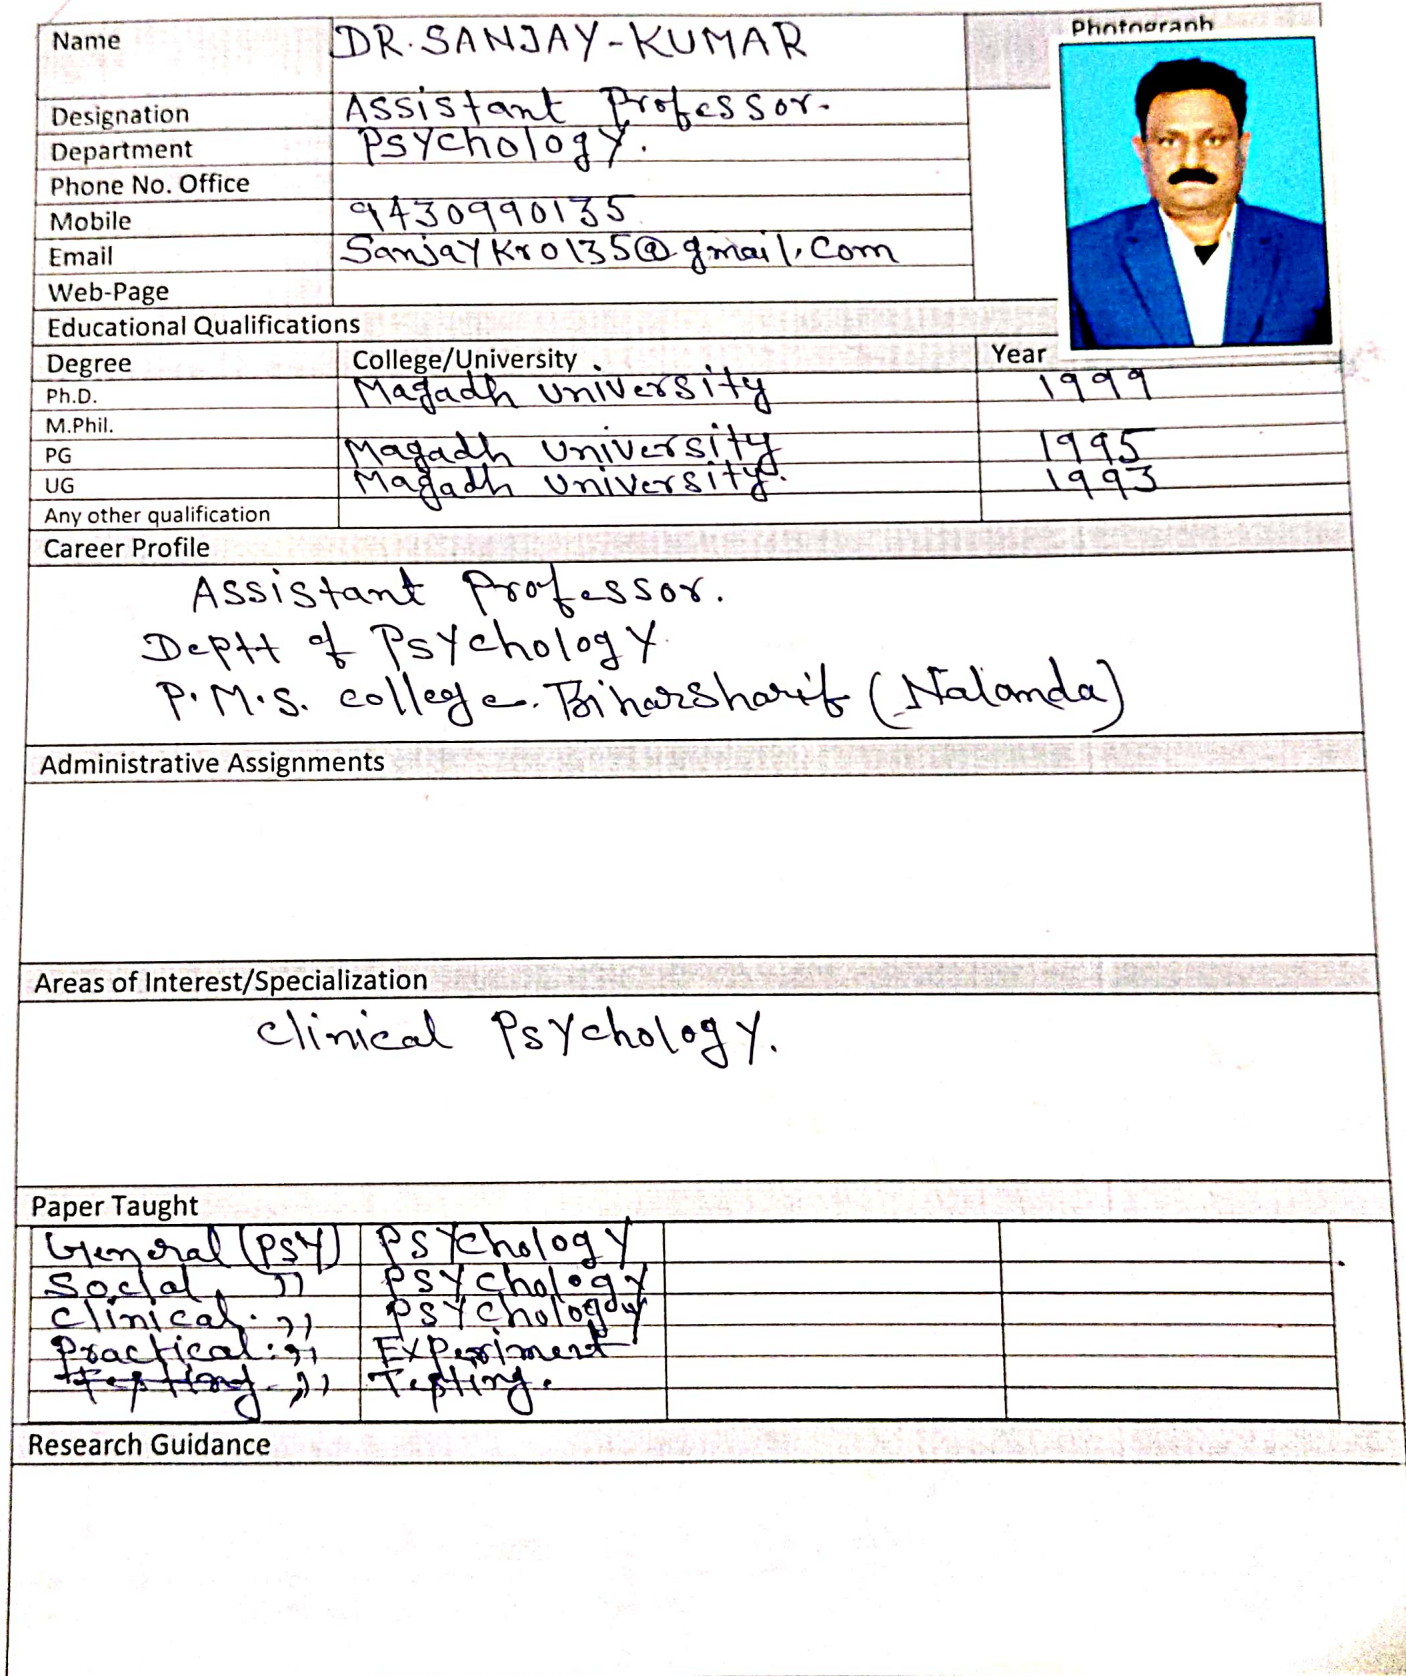 Name DR. SANJAY-KUMAR Photograph
Designation Assistant Professor.
Department Psychology.
Phone No. Office
Mobile 9430990135
Email Sanjaykr0135@gmail.com
Web-Page
Educational Qualifications
Degree College/University Year
Ph.D. Magadh University 1999
M.Phil.
PG Magadh University 1995
UG Magadh University. 1993
Any other qualification
Career Profile
Assistant Professor.
Deptt of Psychology
P.M.S. college. Biharsharif (Nalanda)
Administrative Assignments
Areas of Interest/Specialization
Clinical Psychology.
Paper Taught
General (PSY) Psychology
Social, ,, Psychology
Clinical. ,, Psychology
Practical: ,, Experiment
Testing ,, Testing.
Research Guidance